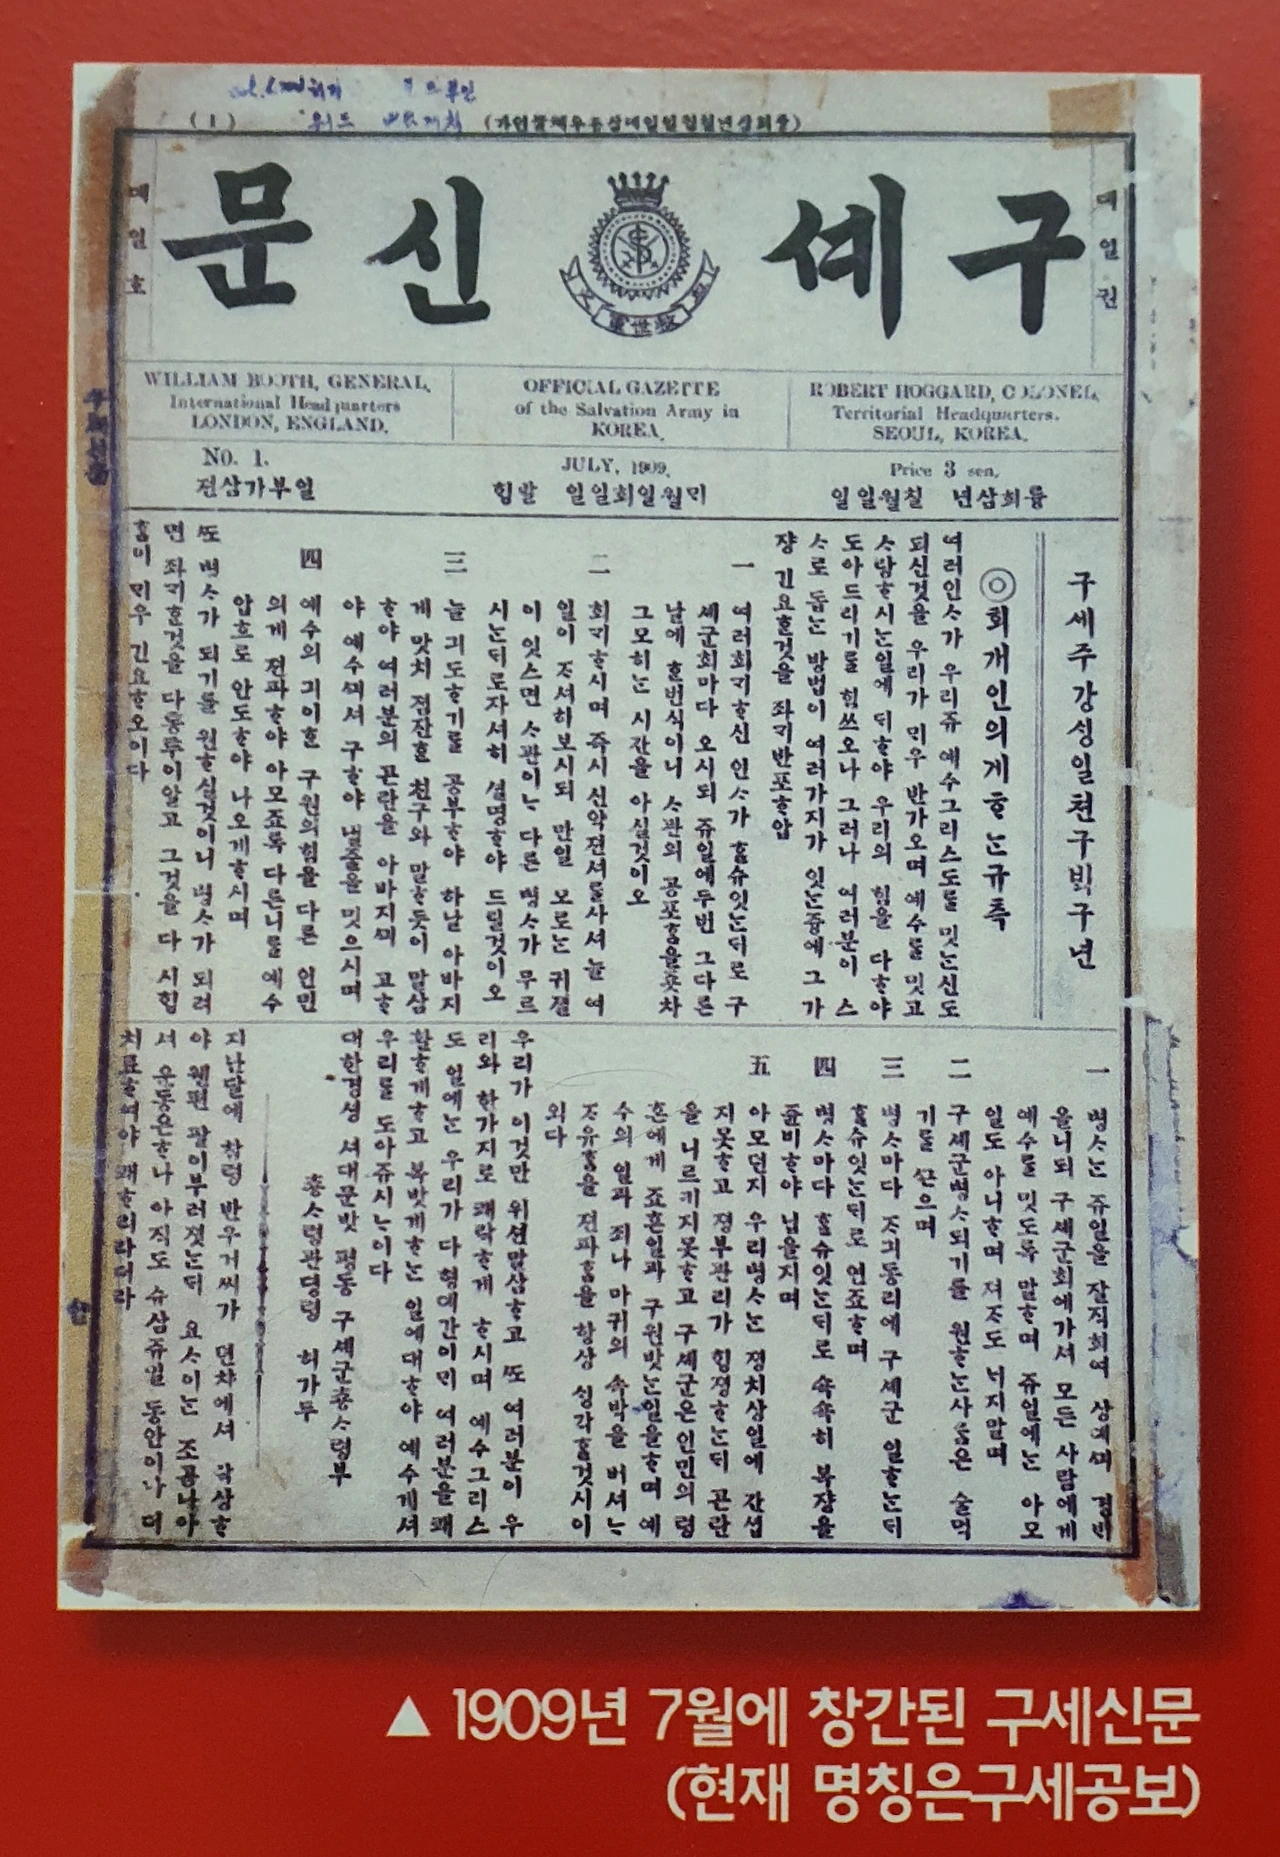 (1) (융희삼년칠월일일뎨삼등우톄물인가)
뎨일권
구셰신문
救世軍
뎨일호
WILLIAM BOOTH, GENERAL,
International Headquarters
LONDON, ENGLAND.
OFFICIAL GAZETTE
of the Salvation Army in
KOREA,
ROBERT HOGGARD, COLONEL,
Territorial Headquarters.
SEOUL, KOREA.
NO. 1.
JULY, 1909,
Price 3 sen,
륭희삼년 칠월일일
ᄆᆡ월일회일일 발ᄒᆡᆼ
일부가삼젼
구세주강ᄉᆡᆼ일쳔구ᄇᆡᆨ구년
◎회개인의게ᄒᆞᄂᆞᆫ규측
여러인ᄉᆞ가 우리쥬 예수그리스도를 밋ᄂᆞᆫ신도
되신것을 우리가 ᄆᆡ우 반가오며 예수를 밋고
ᄉᆞ랑ᄒᆞ시ᄂᆞᆫ일에 ᄃᆡᄒᆞ야 우리의 힘을 다ᄒᆞ야
도아드리기를 힘쓰오나 그러나 여러분이 스
ᄉᆞ로 돕ᄂᆞᆫ 방법이 여러가지가 잇ᄂᆞᆫ즁에 그 가
쟝 긴요ᄒᆞᆫ것을 좌긔반포ᄒᆞᆸ
一 여러회ᄀᆡᄒᆞ신 인ᄉᆞ가 ᄒᆞᆯ슈잇ᄂᆞᆫᄃᆡ로 구
셰군회마다 오시되 쥬일에두번 그다른
날에 ᄒᆞᆫ번식이니 ᄉᆞ관의 공포ᄒᆞᆷ을좃차
그모히ᄂᆞᆫ 시간을 아실것이오
二 회ᄀᆡᄒᆞ시며 즉시 신약젼셔를사셔 늘 여
일이 ᄌᆞ셔히보시되 만일 모로ᄂᆞᆫ 귀졀
이 잇스면 ᄉᆞ관이ᄂᆞ 다른 병ᄉᆞ가 무르
시ᄂᆞᆫᄃᆡ로자셔히 셜명ᄒᆞ야 드릴것이오
三 늘 긔도ᄒᆞ기를 공부ᄒᆞ야 하날 아바지
게 맛치 졈잔ᄒᆞᆫ 친구와 말ᄒᆞ듯이 말삼
ᄒᆞ야 여러분의 곤란을 아바지ᄭᅴ 고ᄒᆞ
야 예수ᄭᅴ셔 구ᄒᆞ야 낼줄을 밋으시며
四 예수의 긔이ᄒᆞᆫ 구원의힘을 다른 인민
의게 젼파ᄒᆞ야 아모죠록 다른니를 예수
압흐로 안도ᄒᆞ야 나오게ᄒᆞ시며
ᄯᅩ 병ᄉᆞ가 되기를 원ᄒᆞ실것이니 병ᄉᆞ가 되려
면 좌긔ᄒᆞᆫ것을 다통투이알고 그것을 다 시힝
ᄒᆞᆷ이 ᄆᆡ우 긴요ᄒᆞ오이다
一 병ᄉᆞᄂᆞᆫ 쥬일을 잘직희여 상뎨ᄭᅴ 경ᄇᆡ
올니되 구셰군회에가셔 모든 사람에게
예수를 밋도록 말ᄒᆞ며 쥬일에ᄂᆞᆫ 아모
일도 아니ᄒᆞ며 져ᄌᆞ도 너지말며
二 구셰군병ᄉᆞ되기를 원ᄒᆞᄂᆞᆫ사ᄅᆞᆷ은 술먹
기를 ᄭᅳᆫ으며
三 병ᄉᆞ마다 ᄌᆞ긔동리에 구셰군 일ᄒᆞᄂᆞᆫᄃᆡ
ᄒᆞᆯ슈잇ᄂᆞᆫᄃᆡ로 연죠ᄒᆞ며
四 병ᄉᆞ마다 ᄒᆞᆯ슈잇ᄂᆞᆫᄃᆡ로 속속히 복쟝을
쥰비ᄒᆞ야 닙을지며
五 아모던지 우리병ᄉᆞᄂᆞᆫ 졍치상일에 간셥
지못ᄒᆞ고 졍부관리가 ᄒᆡᆼ졍ᄒᆞᄂᆞᆫᄃᆡ 곤란
을 니르키지못ᄒᆞ고 구셰군은인민의 령
혼에게 죠흔일과 구원밧ᄂᆞᆫ일을ᄒᆞ며 예
수의 일과 죄나 마귀의 속박을 버셔ᄂᆞ
ᄌᆞ유ᄒᆞᆷ을 젼파ᄒᆞᆷ을 항상 ᄉᆡᆼ각ᄒᆞᆯ것시이
외다
우리가 이것만 위션말삼ᄒᆞ고 ᄯᅩ 여러분이 우
리와 한가지로 쾌락ᄒᆞ게 ᄒᆞ시며 예수그리스
도 일에ᄂᆞᆫ 우리가 다 형뎨간이ᄆᆡ 여러분을 쾌
활ᄒᆞ게ᄒᆞ고 복밧게ᄒᆞᄂᆞᆫ 일에대ᄒᆞ야 예수게셔
우리를 도아쥬시ᄂᆞ이다
대한경셩 셔대문밧 평동 구셰군총ᄉᆞ령부
총ᄉᆞ령관뎡령 허가두
지난달에 참령 반우거씨가 뎐차에셔 락상ᄒᆞ
야 왼편 팔이부러졋ᄂᆞᆫᄃᆡ 요ᄉᆞ이ᄂᆞᆫ 조곰나아
셔 운동은ᄒᆞ나 아직도 슈삼쥬일 동안이나 더
치료ᄒᆞ여야 쾌ᄒᆞ리라더라
▲ 1909년 7월에 창간된 구세신문
(현재 명칭은구세공보)